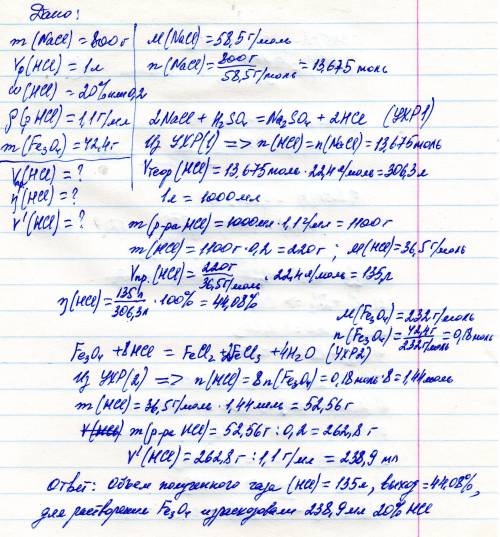 Дано:
m(NaCl) = 800 г
Vp(HCl) = 1 л
ω(HCl) = 20% или 0,2
ρ(рHCl) = 1,1 г/мл
m(Fe3O4) = 42,4 г
Vпр(HCl) = ?
η(HCl) = ?
V'(HCl) = ?
M(NaCl) = 58,5 г/моль
n(NaCl) = 800 г / 58,5 г/моль = 13,675 моль
2NaCl + H2SO4 = Na2SO4 + 2HCl (УХР1)
Из УХР(1) => n(HCl) = n(NaCl) = 13,675 моль
Vтеор(HCl) = 13,675 моль · 22,4 л/моль = 306,3 л
1 л = 1000 мл
m(р-ра HCl) = 1000 мл · 1,1 г/мл = 1100 г
m(HCl) = 1100 г · 0,2 = 220 г ; M(HCl) = 36,5 г/моль
Vпр.(HCl) = 220 г / 36,5 г/моль · 22,4 л/моль = 135 л
η(HCl) = 135 л / 306,3 л · 100% = 44,08%
M(Fe3O4) = 232 г/моль
n(Fe3O4) = 42,4 г / 232 г/моль = 0,18 моль
Fe3O4 + 8HCl = FeCl2 + 2FeCl3 + 4H2O (УХР2)
Из УХР(2) => n(HCl) = 8n(Fe3O4) = 0,18 моль · 8 = 1,44 моль
m(HCl) = 36,5 г/моль · 1,44 моль = 52,56 г
V(HCl) m(р-ра HCl) = 52,56 г : 0,2 = 262,8 г
V'(HCl) = 262,8 г : 1,1 г/мл = 238,9 мл
Ответ: Объем полученного газа (HCl) = 135 л, выход = 44,08%,
для растворения Fe3O4 израсходовали 238,9 мл 20% HCl